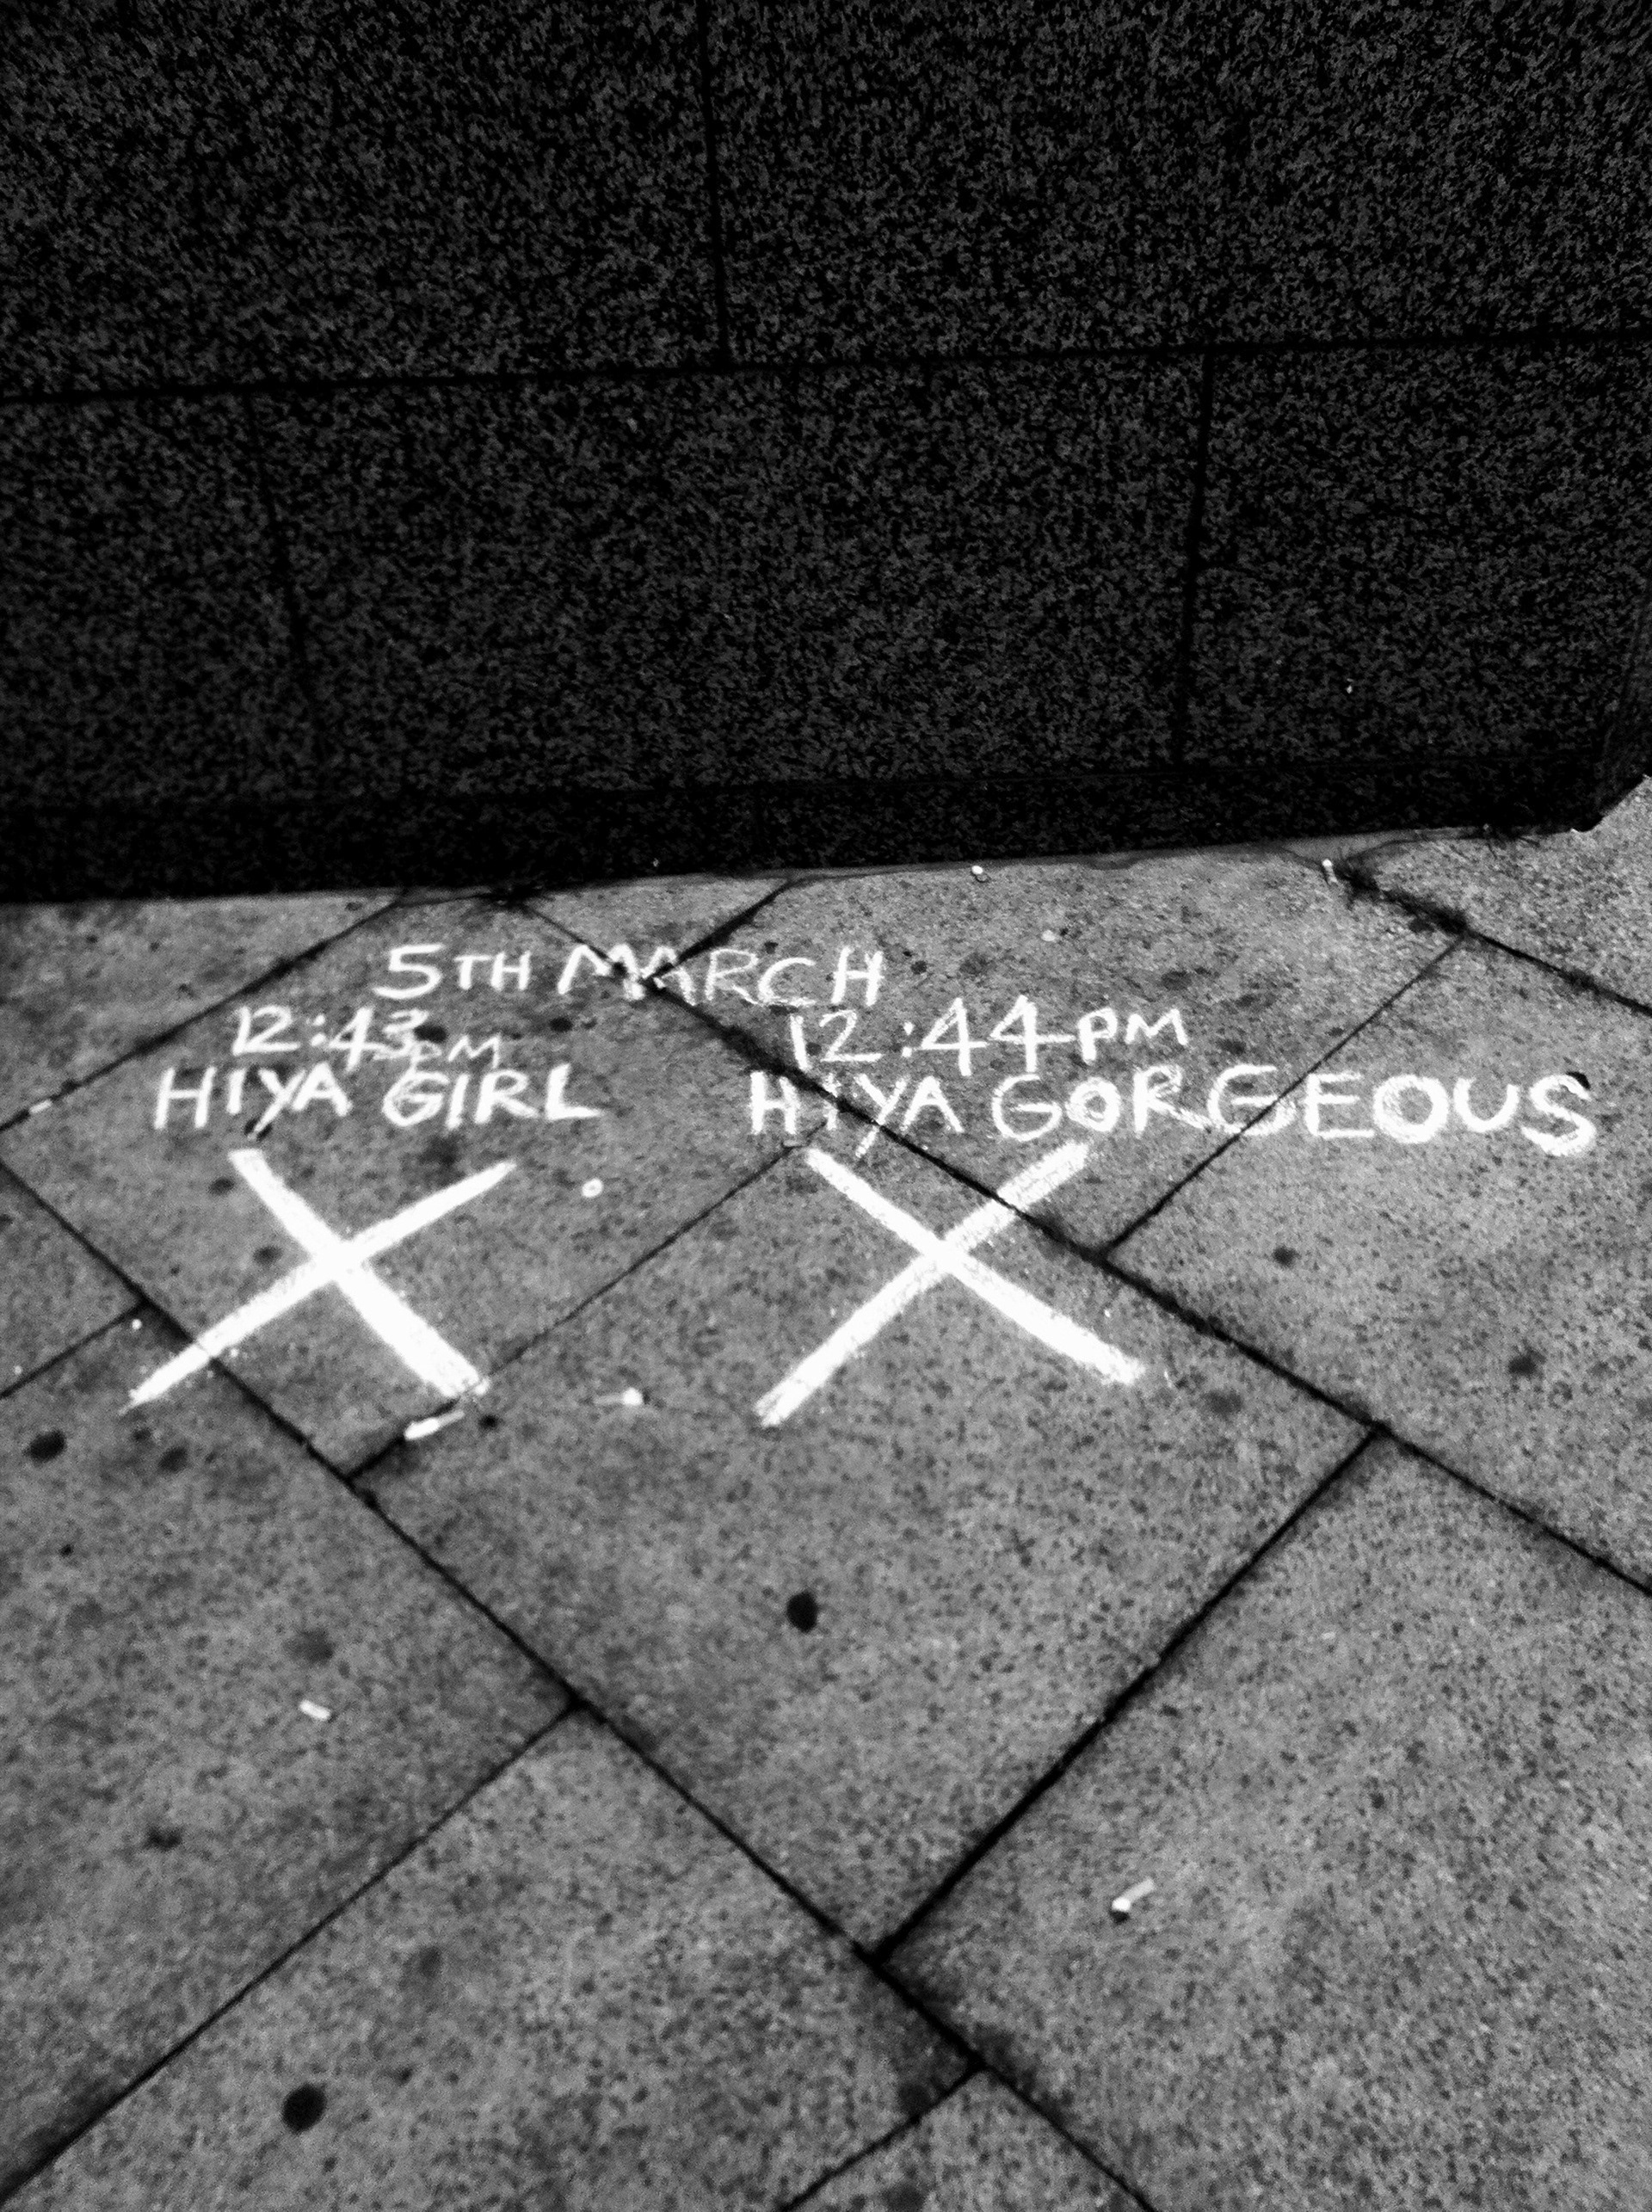 5TH MARCH
12:43PM
HIYA GIRL
12:44PM
HIYA GORGEOUS